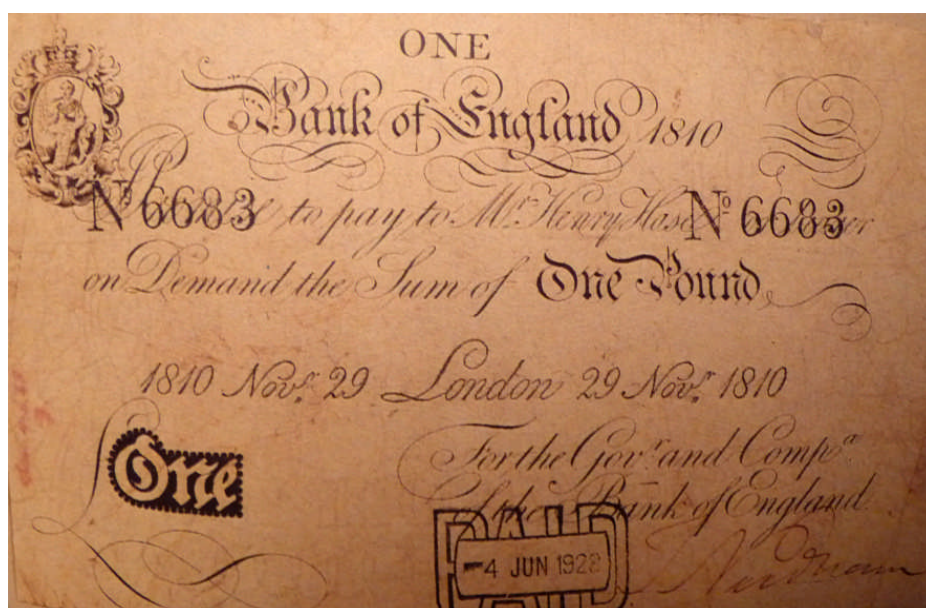 ONE
Bank of England 1810
Nº 6683 to pay to Mr. Henry Hase Nº 6683
on Demand the Sum of One Pound
1810 Novr. 29 London 29 Novr. 1810
For the Govr. and Compa.
of the Bank of England.
£ One
PAID
4 JUN 1928